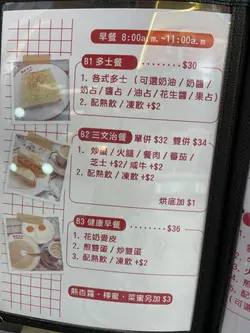 早餐 8:00a.m.~11:00a.m
B1 多士餐 $30
1. 各式多士 (可選奶油/奶醬/
奶占/醬占/油占/花生醬/果占)
2. 配熱飲/凍飲+$2
B2 三文治餐 單併 $32 雙併 $34
1. 炒蛋/火腿/餐肉/蕃茄/
芝士+$2/咸牛+$2
2. 配熱飲/凍飲+$2
烘底加 $1
B3 健康早餐 $36
1. 花奶麥皮
2. 煎雙蛋/炒雙蛋
3. 配熱飲/凍飲+$2
熱杏霜,檸蜜,菜蜜另加 $3